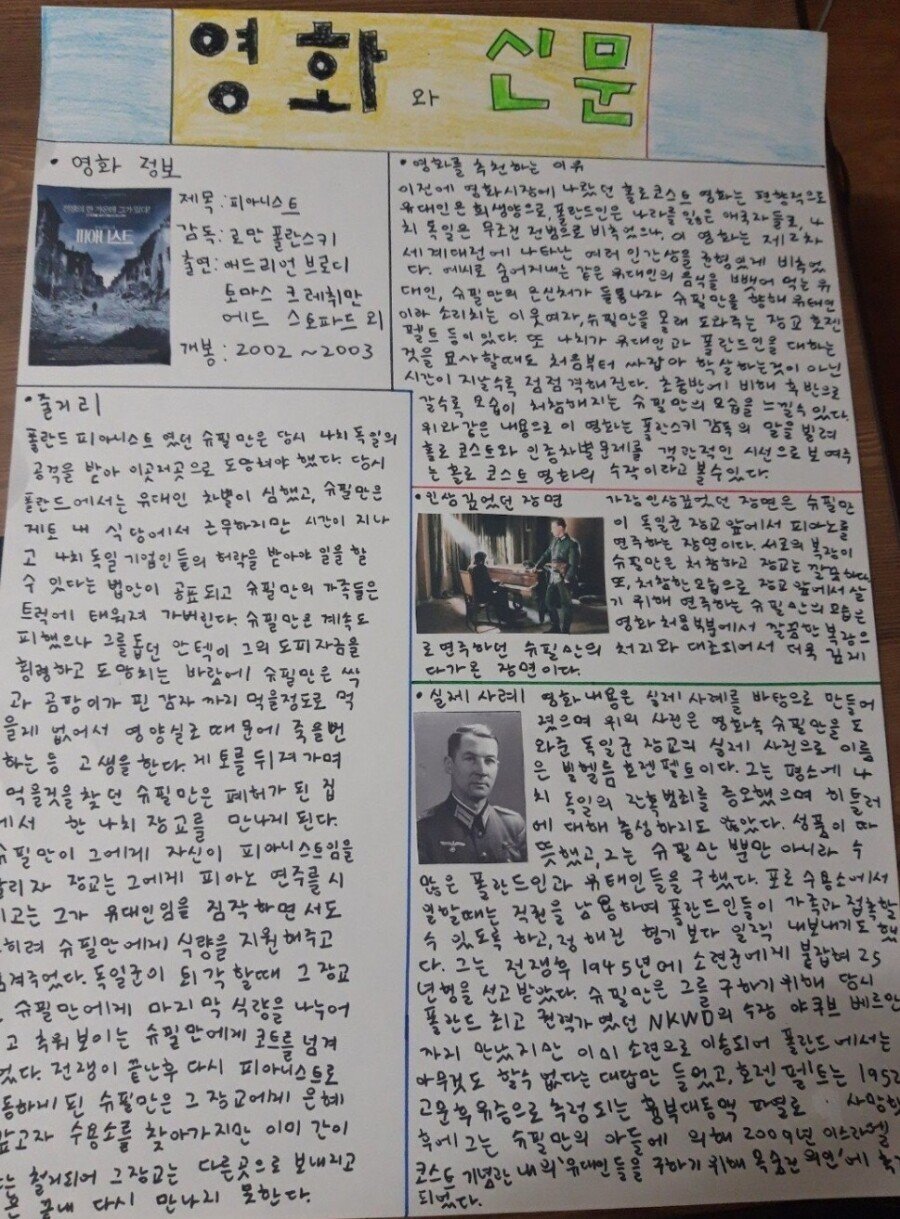 영화 와 신문
• 영화 정보
전쟁의 한 가운데 그가 있다!
피아니스트
제목 : 피아니스트
감독 : 로만 폴란스키
출연 : 애드리언 브로디
토마스 크레취만
에드 스토파드 외
개봉 : 2002 ~2003
• 줄거리
폴란드 피아니스트 였던 슈필만은 당시 나치 독일의
공격을 받아 이곳저곳으로 도망쳐야 했다. 당시
폴란드에서는 유대인 차별이 심했고, 슈필만은
게토 내 식당에서 근무하지만 시간이 지나
고 나치 독일 기업인들의 허락을 받아야 일을 할
수 있다는 법안이 공표되고 슈필만의 가족들은
트럭에 태워져 가버린다. 슈필만은 계속도
피했으나 그를 돕던 안텍이 그의 도피자금을
횡령하고 도망치는 바람에 슈필만은 싹
과 곰팡이가 핀 감자 까지 먹을정도로 먹
을게 없어서 영양실조 때문에 죽을뻔
하는등 고생을 한다. 게토를 뒤져가며
먹을것을 찾던 슈필만은 폐허가 된 집
에서 한 나치 장교를 만나게 된다.
슈필만이 그에게 자신이 피아니스트임을
알리자 장교는 그에게 피아노 연주를 시
키고는 그가 유대인임을 짐작하면서도
오히려 슈필만에게 식량을 지원해주고
숨겨주었다. 독일군이 퇴각할때 그 장교
슈필만에게 마지막 식량을 나누어
고 추워보이는 슈필만에게 코트를 넘겨
었다. 전쟁이 끝난후 다시 피아니스트로
동하게 된 슈필만은 그 장교에게 은혜
갚고자 수용소를 찾아가지만 이미 간이
는 철거되어 그장교는 다른곳으로 보내지고
은 끝내 다시 만나지 못한다.
• 영화를 추천하는 이유
이전에 영화시장에 나왔던 홀로코스트 영화는 편향적으로
유대인은 희생양으로, 폴란드인은 나라를 잃은 애국자들로, 나
치 독일은 무조건 전범으로 비추었으나, 이 영화는 제 2차
세계대전에 나타난 여러 인간상을 균형있게 비추었
다. 예시로 숨어지내는 같은 유대인의 음식을 뺏어 먹는 유
대인, 슈필만의 은신처가 들통나자 슈필만을 향해 유태인
이라 소리치는 이웃여자, 슈필만을 몰래 도와주는 장교 호젠
펠트 등이 있다. 또 나치가 유대인과 폴란드인을 대하는
것을 묘사할때도 처음부터 싸잡아 학살하는것이 아닌
시간이 지날수록 점점 격해진다. 초중반에 비해 후반으로
갈수록 모습이 처참해지는 슈필만의 모습을 느낄수 있다.
위와같은 내용으로 이 영화는 폴란스키 감독의 말을 빌려
홀로 코스트와 인종차별문제를 객관적인 시선으로 보여주
는 홀로 코스트 영화의 수작이라고 볼수있다.
• 인상 깊었던 장면 가장 인상깊었던 장면은 슈필만
이 독일군 장교 앞에서 피아노를
연주하는 장면이다. 서로의 복장이
슈필만은 처참하고 장교는 깔끔하다.
또, 처참한 모습으로 장교 앞에서 살
기 위해 연주하는 슈필만의 모습은
영화 처음부분에서 깔끔한 복장으
로 연주하던 슈필만의 처지와 대조되어서 더욱 깊게
다가온 장면이다.
• 실제 사례 영화 내용은 실제 사례를 바탕으로 만들어
졌으며 위의 사진은 영화속 슈필만을 도
와준 독일군 장교의 실제 사진으로 이름
은 빌헬름 호젠펠트이다. 그는 평소에 나
치 독일의 잔혹범죄를 증오했으며 히틀러
에 대해 충성하지도 않았다. 성품이 따
뜻했고, 그는 슈필만 뿐만 아니라 수
많은 폴란드인과 유태인들을 구했다. 포로 수용소에서
일할때는 직권을 남용하여 폴란드인들이 가족과 접촉할
수 있도록 하고, 정해진 형기 보다 일찍 내보내기도 했
다. 그는 전쟁후 1945년에 소련군에게 붙잡혀 25
년형을 선고 받았다. 슈필만은 그를 구하기 위해 당시
폴란드 최고 권력가 였던 NKWD의 수장 야쿠브 베르만
까지 만났지만 이미 소련으로 이송되어 폴란드에서는
아무것도 할수 없다는 대답만 들었고, 호젠펠트는 1952
고문후유증으로 추정 되는 흉부대동맥 파열로 사망한
후에 그는 슈필만의 아들에 의해 2009년 이스라엘
코스트 기념관 내의 '유대인들을 구하기 위해 목숨건 의인'에
되었다.